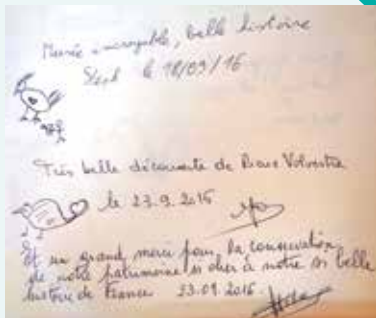 Musée incroyable, belle histoire
Steph le 18/09/16
Très belle découverte de Rieux Volvestre
le 23.9.2016
Et un grand merci pour la conservation
de notre patrimoine si cher à notre si belle
histoire de France 23.09.2016